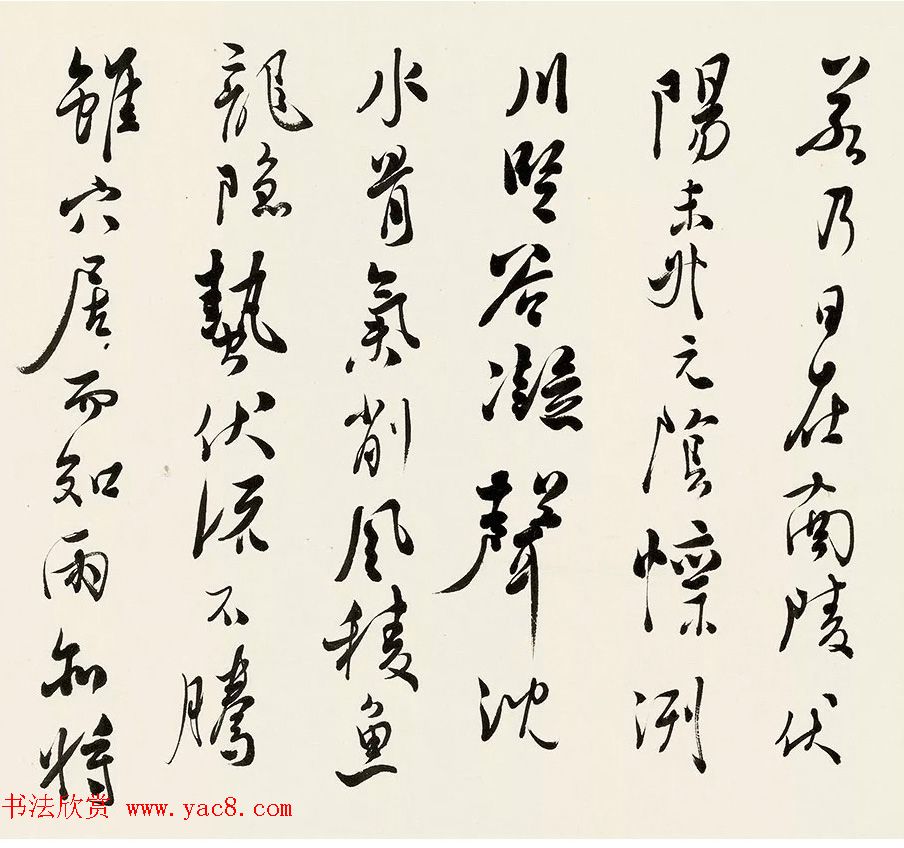 若乃日在陵伏
陽未升元陰懍冽
川堅谷凝聲沈
水骨氣削風稜魚
龍隱蟄伏流不騰
雖穴居而知雨亦將
书法欣赏 www.yac8.com